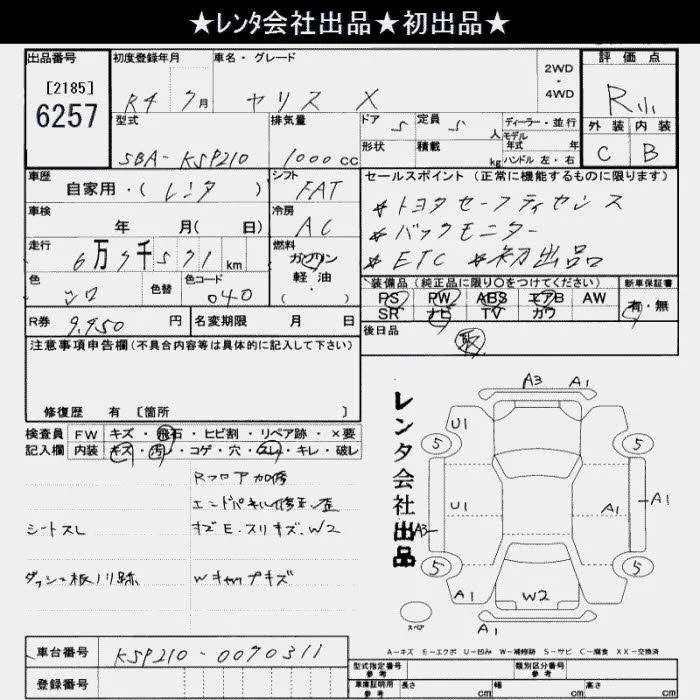 ★レンタ会社出品★初出品★
出品番号 初度登録年月 車名・グレード 2WD・4WD 評価点
[2185]
6257
R4 7月 ヤリス X R小
型式 排気量 ドア 定員 ディーラー・並行
SBA-KSP210 1000cc 5 5人 モデル年式 年
形状 積載 kg ハンドル 左・右
外装 内装
C B
車歴 自家用・(レンタ) シフト FAT
セールスポイント(正常に機能するものに限ります)
*トヨタセーフティセンス
*バックモニター
*ETC *初出品
車検 年 月(日) 冷房 AC
走行 6万7千571km 燃料 ガソリン・軽油・
色 シロ 色替 色コード 040
装備品(純正品に限り○をつけてください) 新車保証書
PS PW ABS エアB AW 有・無
SR ナビ TV カワ
R券 9,950円 名変期限 月 日
後日品 取
注意事項申告欄(不具合内容等は具体的に記入して下さい)
修復歴 有 [箇所 ]
検査員 FW キズ・飛石・ヒビ割・リペア跡・×要
記入欄 内装 キズ・汚レ・コゲ・穴・スレ・キレ・破レ
Rフロア加修
エンドパネル修正歪
シートスレ キズE・スリキズ・W2
ダッシュ板ノリ跡 Wキャップキズ
レンタ会社出品
A3 A1
U1
5 5
U1 A1 A1
A3
5 5
A1 W2
A1
スペア
A-キズ E-エクボ U-凹み W-補修跡 S-サビ C-腐食 XX-交換済
車台番号 KSP210-0090311
登録番号
型式指定番号 参考 類別区分番号 参考
車庫証明用 参考 長さ cm 幅 cm 高さ cm